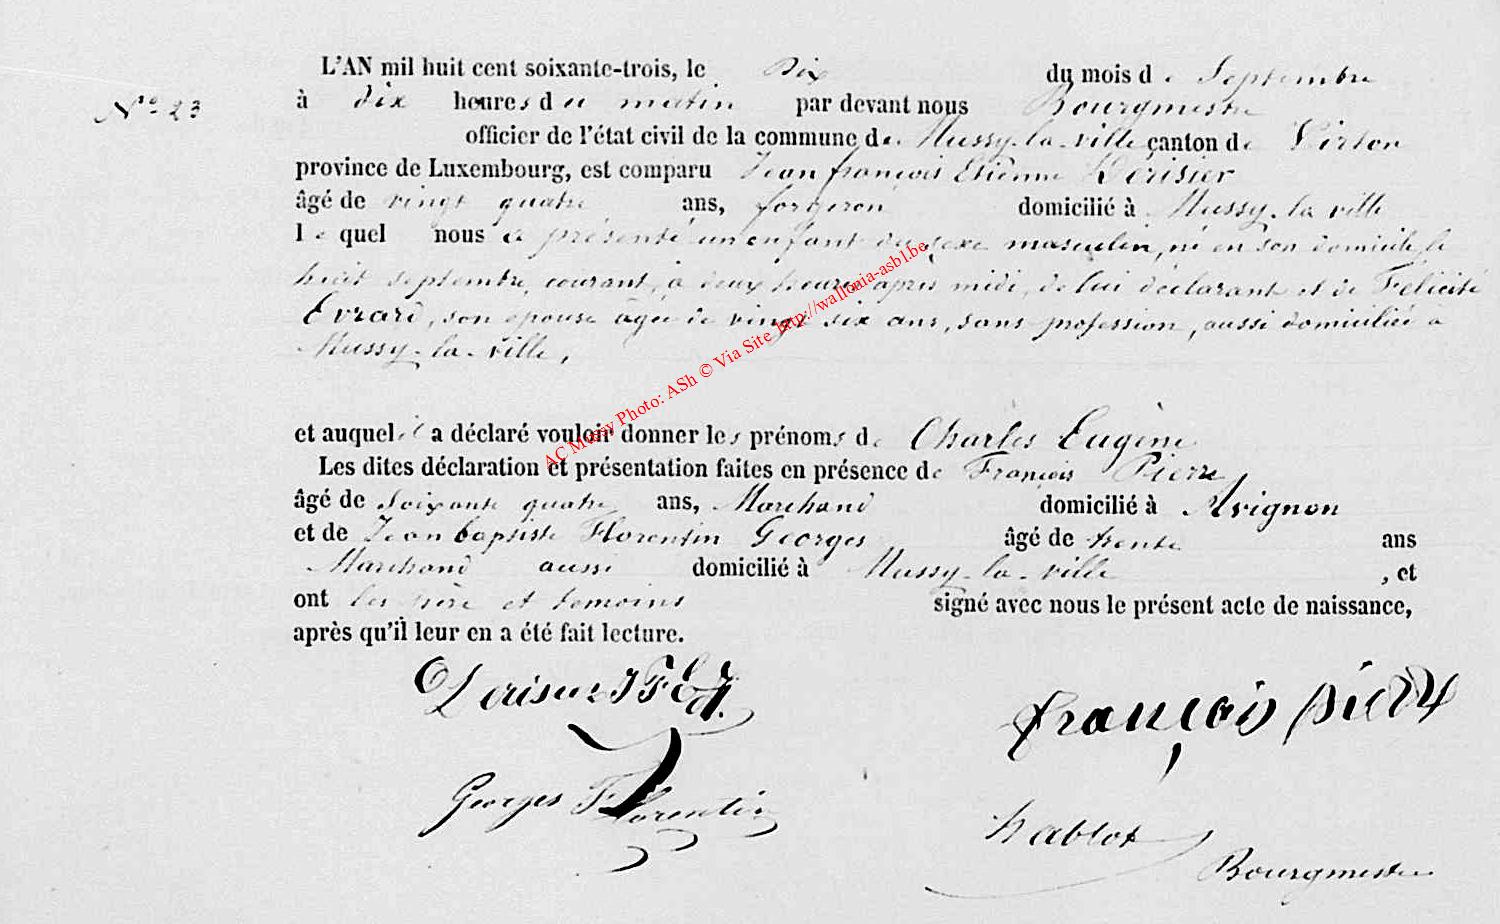 L'AN mil huit cent soixante-trois, le dix du mois de Septembre
N° 23
à dix heures du matin par devant nous Bourgmestre
officier de l'état civil de la commune de Mussy-la-ville canton de Virton
province de Luxembourg, est comparu Jean françois Etienne Derisier
âgé de vingt quatre ans, forgeron domicilié à Mussy-la ville
lequel nous a présenté un enfant du sexe masculin, né en son domicile, le
huit septembre, courant, à deux heures après midi, de lui déclarant et de Félicité
Evrard, son épouse agée de vingt six ans, sans profession, aussi domiciliée a
Mussy-la-ville,
et auquel il a déclaré vouloir donner les prénoms de Charles Eugène
Les dites déclaration et présentation faites en présence de François Pierre
âgé de soixante quatre ans, Marchand domicilié à Avignon
et de Jean baptiste Florentin Georges âgé de trente ans
Marchand aussi domicilié à Mussy-la-ville, et
ont les père et temoins signé avec nous le présent acte de naissance,
après qu'il leur en a été fait lecture.
françois pierre
Georges Florentin
hablot
Bourgmestre
AC Mussy Photo: ASh © Via Site http://wallonia-asbl.be